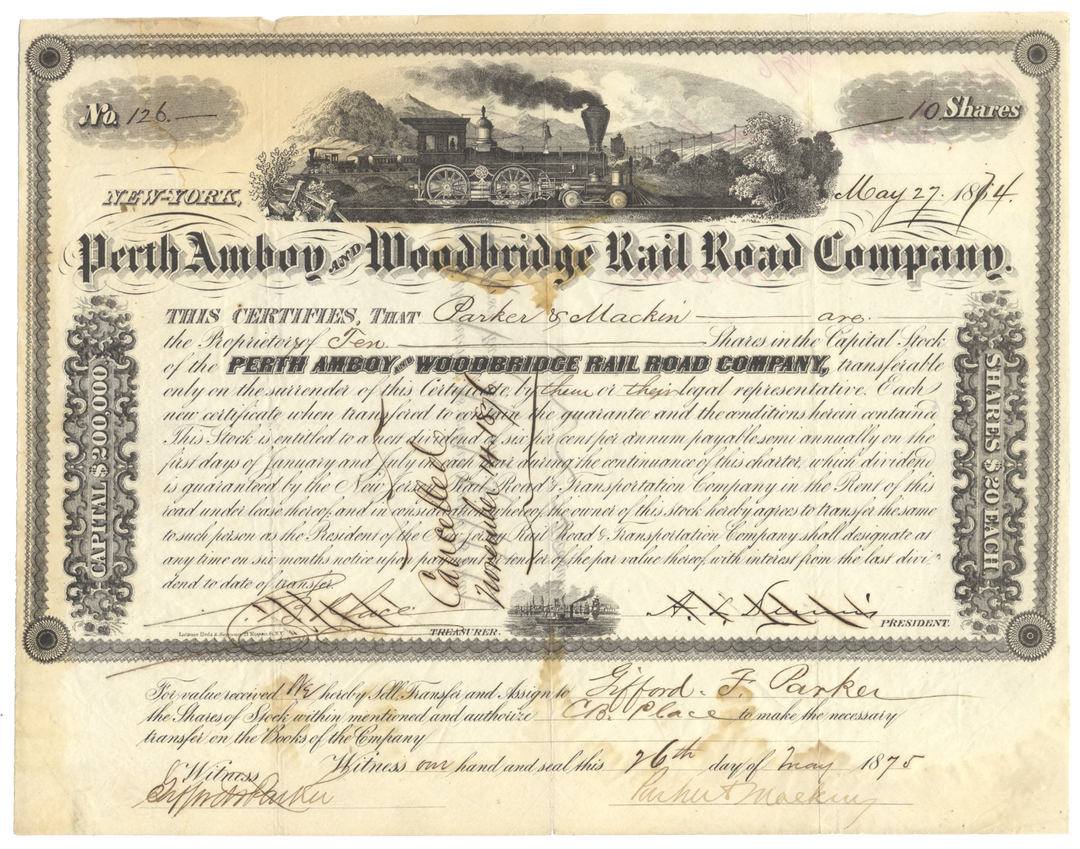 No. 126.
10 Shares
NEW-YORK, May 27. 1874.
Perth Amboy AND Woodbridge Rail Road Company.
THIS CERTIFIES, THAT Parker & Mackin are
the Proprietors of Ten Shares in the Capital Stock
of the PERTH AMBOY AND WOODBRIDGE RAIL ROAD COMPANY, transferable
only on the surrender of this Certificate, by them or their legal representative. Each
new certificate when transferred to contain the guarantee and the conditions herein containe
This Stock is entitled to a nett dividend of six per cent per annum payable semi annually on the
first days of January and July in each year during the continuance of this charter, which dividend
is guaranteed by the New Jersey Rail Road & Transportation Company in the Rent of this
road under lease thereof, and in consideration whereof, the owner of this stock hereby agrees to transfer the same
to such person as the President of the New Jersey Rail Road & Transportation Company shall designate at
any time on six months notice upon payment to owner of the par value thereof, with interest from the last divi-
dend to date of transfer.
CAPITAL $200000
SHARES $20 EACH
Cancelled
November 14. 1876
Place TREASURER.
PRESIDENT.
For value received We hereby Sell, Transfer and Assign to Gifford. F. Parker
the Shares of Stock within mentioned and authorize C.B. Place to make the necessary
transfer on the Books of the Company
Witness our hand and seal this 26th day of May 1875
Witness
Gifford F Parker
Parker & Mackin